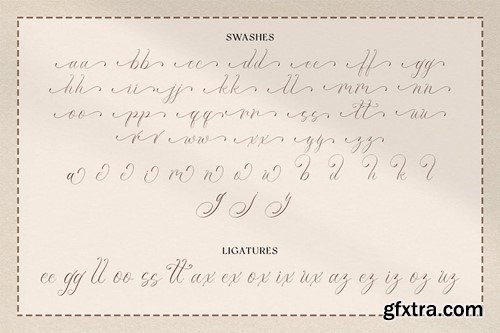 SWASHES
aa bb cc dd ee ff gg
hh ii jj kk ll mm nn
oo pp qq rr ss tt uu
vv ww xx yy zz
a e i m n u b d h k l
g j y
LIGATURES
ee gg ll oo ss tt ax ex ox ix ux az ez iz oz uz
gfxtra.com